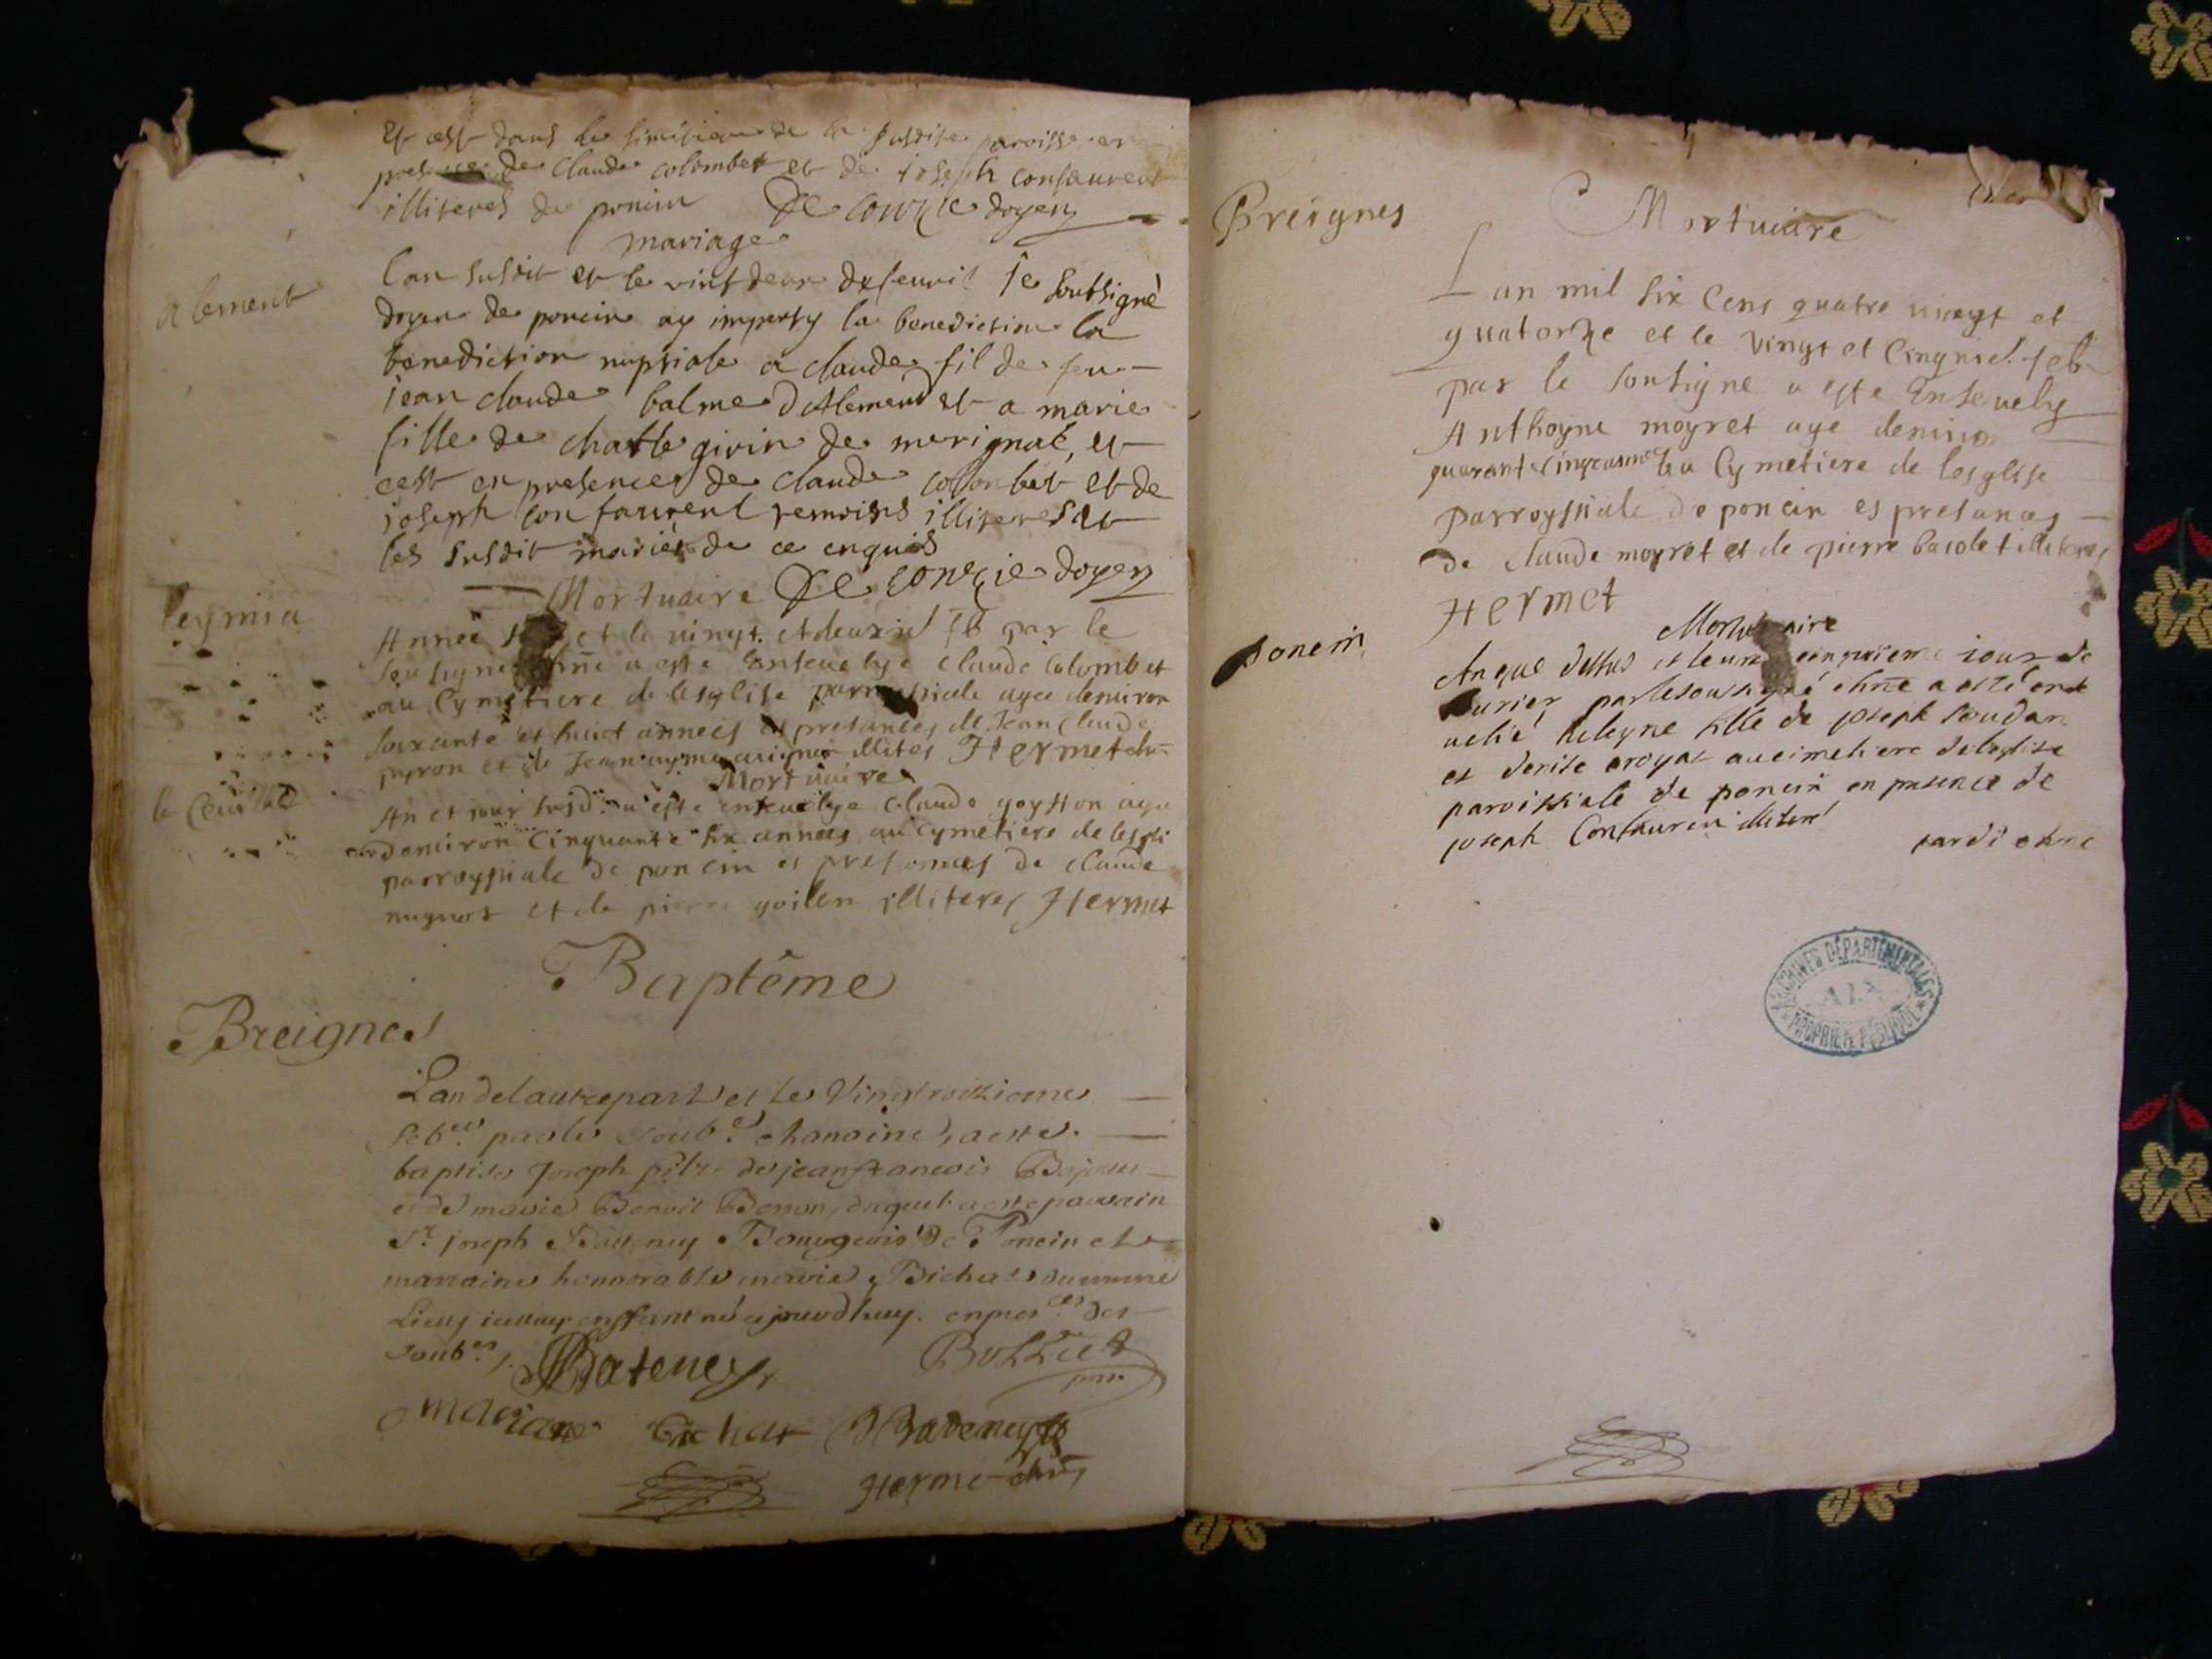 et cest dans le simitiere de la susdite paroisse en
presence de Claude colombet et de ioseph confaurent
illiteres de poncin De Conzie doyen
mariage
alement
lan susdit et le vint deux de feuvril Je soutsigné
doyen de poncin ay imparty la benediction la
benediction nuptiale a claude fil de feu
iean claude balme dAlement et a marie
fille de charle givin de merignat, et
cest en presences de claude colonbet et de
joseph confaurent temoins illiteres et
les susdit mariés de ce enquis
Mortuaire De Conzie doyen
leymia
Année et le vingt et deuxie feb par le
soutsigne chne a este ensevelye claude Colombet
au Cymetiere de lesglise parroyssiale agee denviron
soixante et huict annees es presances de Jean Claude
pupron et de Jean illites Hermet chne
Mortuaire
le
An et jour susd a este ensevelye Claude goytton age
denviron Cinquante six annees au cymetiere de lesgli
parroyssiale de poncin es presances de claude
mugnot et de pierre goilon illiteres Hermet
Baptême
Breignes
Lan delautrepart et le Vingtroizieme
feb.er par le soub.é chanoine, a esté
baptisé Joseph filz de jean francois Bojouer
et de marie Benoit Benon, duquel a esté parrain
Sr joseph Batteney Bourgeois de Poncin et
marraine honnorable marie Bichat du mesme
Lieu, iceluy enffant né ajourdhuy. enpres.ces des
soub.es. Bateney Bolliet
mariane Bichat Bateney
Herme chne
Breignes
Mortuaire
Lan mil six Cens quatre vingt et
quatorze et le Vingt et Cinquie. feb
par le soutsigne a este Ensevely
Anthoyne moyret age denviron
quarante cinq annees au Cymetiere de lesglise
parroyssiale de poncin es presances
de claude moyret et de pierre basolet illiteres
Hermet
Mortuaire
poncin
An que dessus et le vingt cinquieme iour de
feurier par le soussigné chne a esté ense
uelie heleyne fille de joseph soudan
et denise aroyat au cimetiere de leglise
paroissiale de poncin en presence de
joseph Confaurent illiteré
pardi chne
ARCHIVES DÉPARTEMENTALES
AIN
PROPRIÉTÉ PUBLIQUE